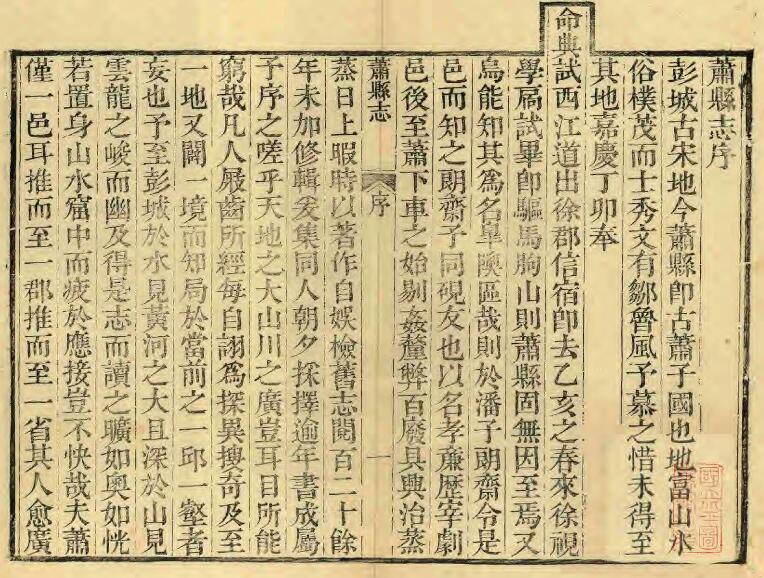 蕭縣志序
彭城古宋地今蕭縣卽古蕭子國也地富山水
俗樸茂而士秀文有鄒魯風予慕之惜未得至
其地嘉慶丁卯奉
命典試西江道出徐郡信宿卽去乙亥之春來徐視
學扃試畢卽驅馬朐山則蕭縣固無因至焉又
烏能知其爲名臯隩區哉則於潘子朗齋令是
邑而知之朗齋予同硯友也以名孝亷歴宰劇
邑後至蕭下車之始剔姦釐弊百廢具興治蒸
蕭縣志
序
一
蒸日上暇時以著作自娛檢舊志閱百二十餘
年未加修輯爰集同人朝夕採擇逾年書成屬
予序之嗟乎天地之大山川之廣豈耳目所能
窮哉凡人屐齒所經每自詡爲探異搜奇及至
一地又闢一境而知局於當前之一邱一壑者
妄也予至彭城於水見黃河之大且深於山見
雲龍之峻而幽及得是志而讀之曠如奧如恍
若置身山水窟中而疲於應接豈不快哉夫蕭
僅一邑耳推而至一郡推而至一省其人愈廣